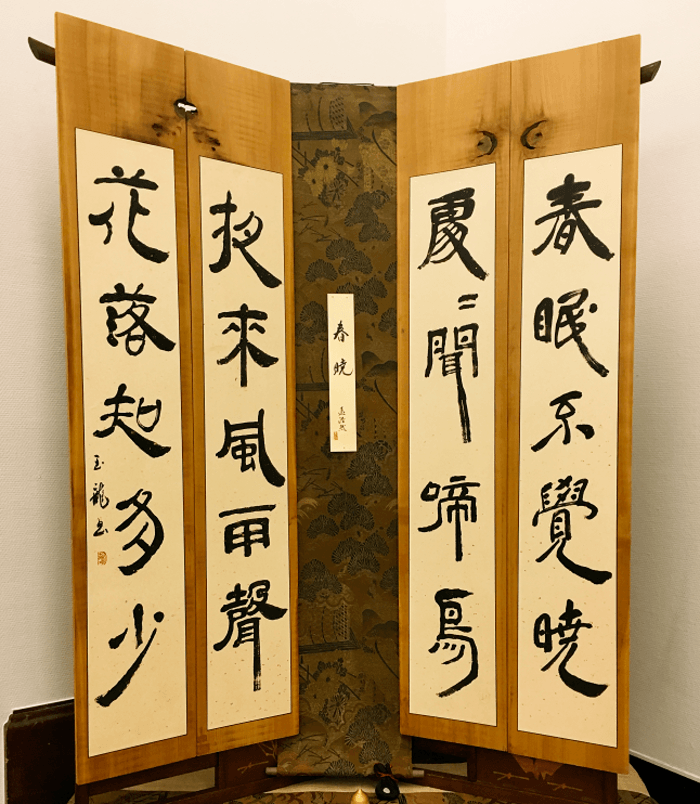 春眠不覺暁
處〻聞啼鳥
春暁
孟浩然
夜來風雨聲
花落知多少
玉龍書